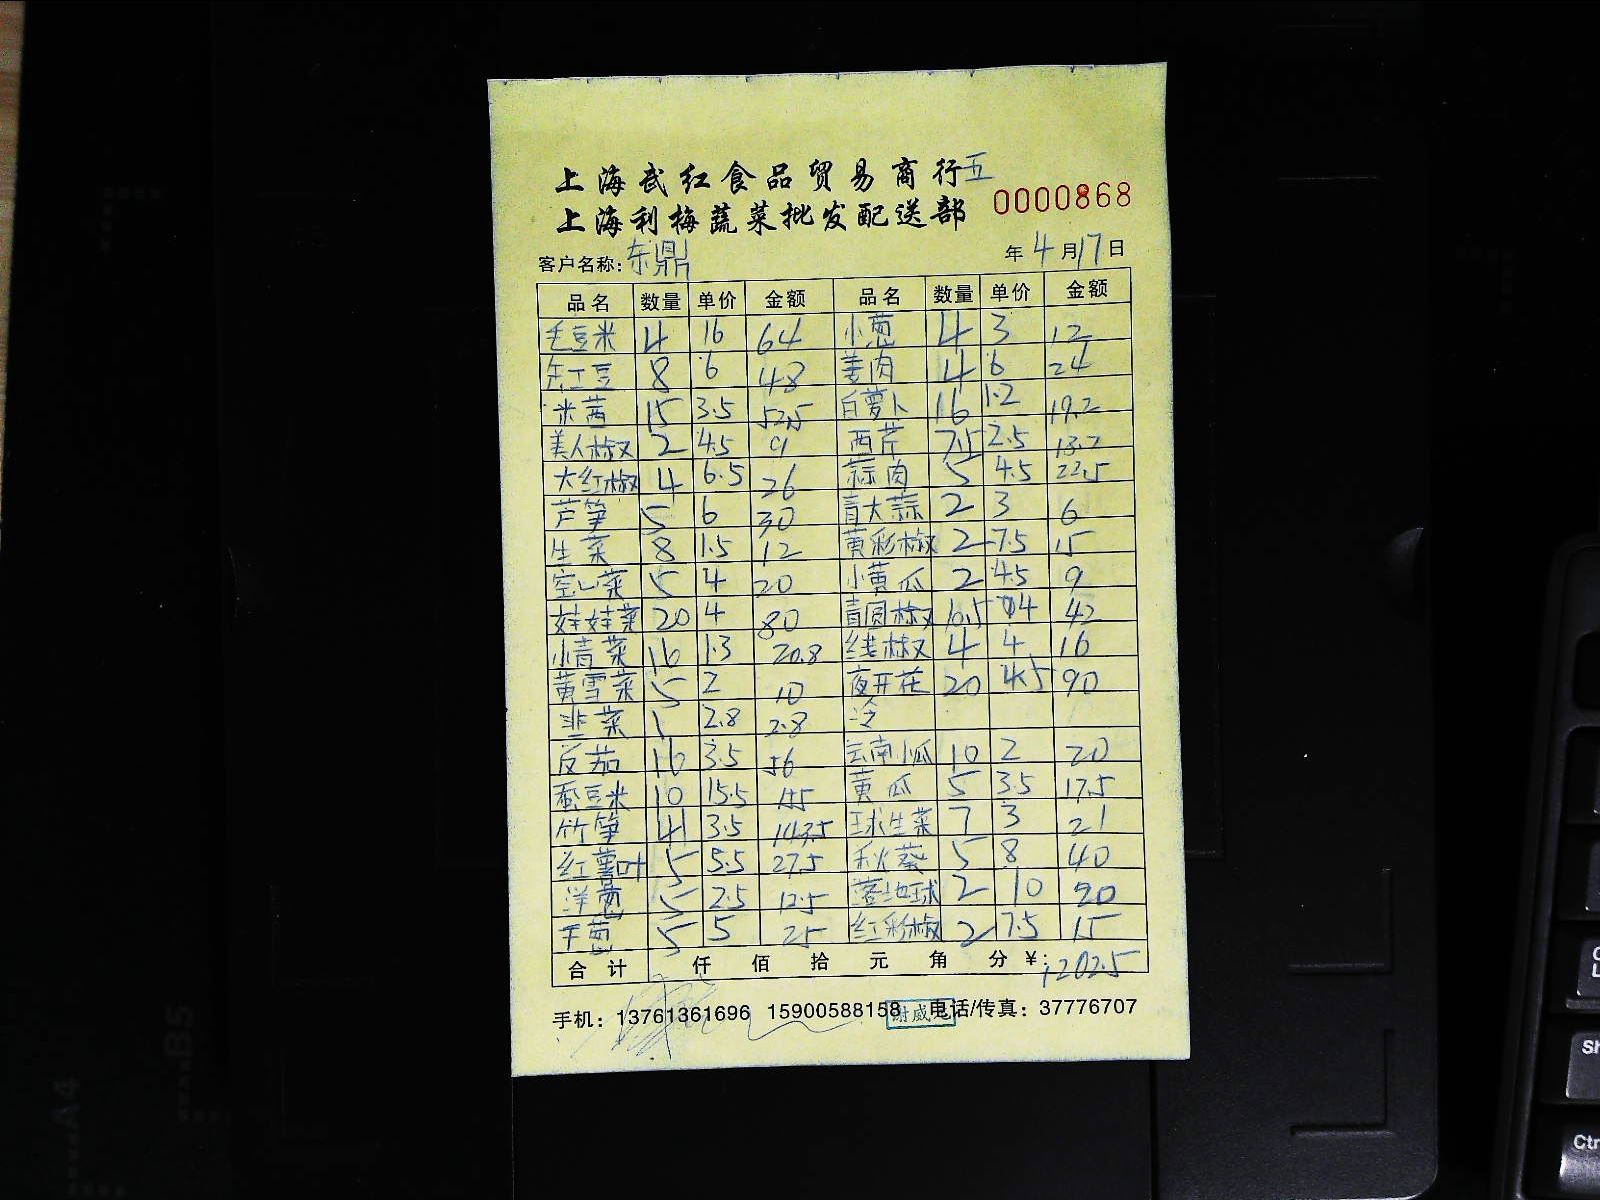 上海武红食品贸易商行 五
上海利梅蔬菜批发配送部 0000868
客户名称：东鼎 年 4 月 17 日
品名 数量 单价 金额 品名 数量 单价 金额
毛豆米 4 16 64 小葱 4 3 12
红豆 8 6 48 姜肉 4 6 24
米茜 15 3.5 52.5 白萝卜 16 1.2 19.2
美人椒 2 4.5 9 西芹 2.5
大红椒 4 6.5 26 蒜肉 5 4.5 22.5
芦笋 5 6 30 青大蒜 2 3 6
生菜 8 1.5 12 黄彩椒 2 7.5 15
空心菜 5 4 20 小黄瓜 2 4.5 9
娃娃菜 20 4 80 青圆椒 10.5 4 42
小青菜 16 1.3 20.8 线椒 4 4 16
黄雪菜 5 2 10 夜开花 20 4.5 90
韭菜 1 2.8 2.8
反茄 16 3.5 56 云南小瓜 10 2 20
蚕豆米 10 15.5 155 黄瓜 5 3.5 17.5
竹笋 41 3.5 143.5 球生菜 7 3 21
红薯叶 5 5.5 27.5 秋葵 5 8 40
洋葱 5 2.5 12.5 落地球 2 10 20
干葱 5 5 25 红彩椒 2 7.5 15
合计 仟 佰 拾 元 角 分 ￥: 1202.5
手机：13761361696 15900588158 电话/传真：37776707
A4
B5